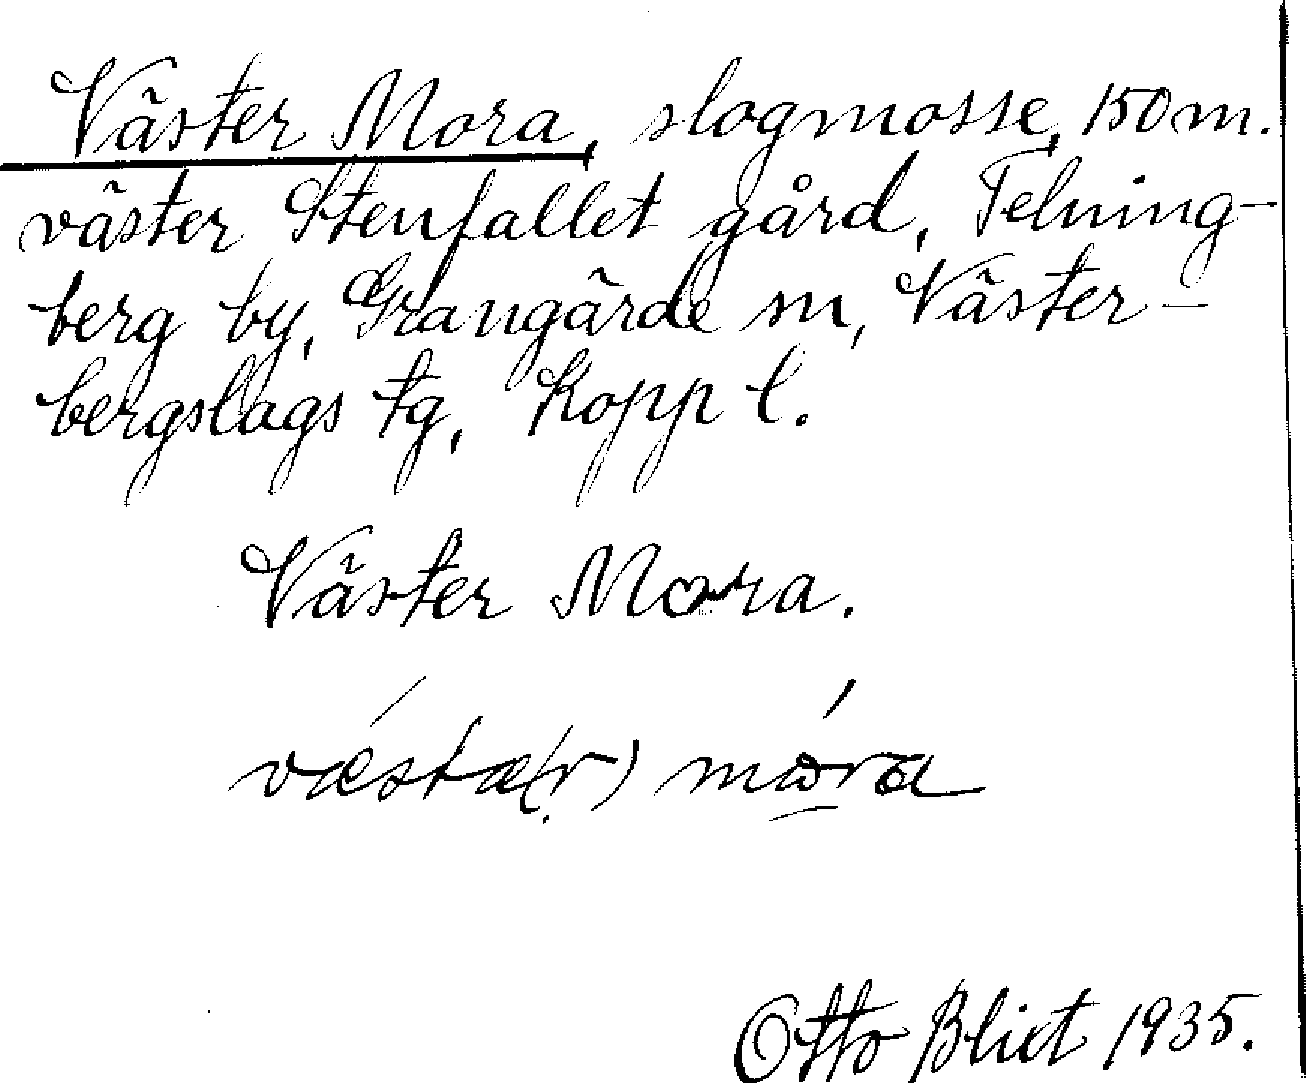 Väster Mora, slogmosse, 150 m.
väster Stenfallet gård, Telning-
berg by, Grangärde sn, Väster-
bergslags tg, Kopp l.
Väster Mora.
væstæ(r) mora
Otto Blixt 1935.